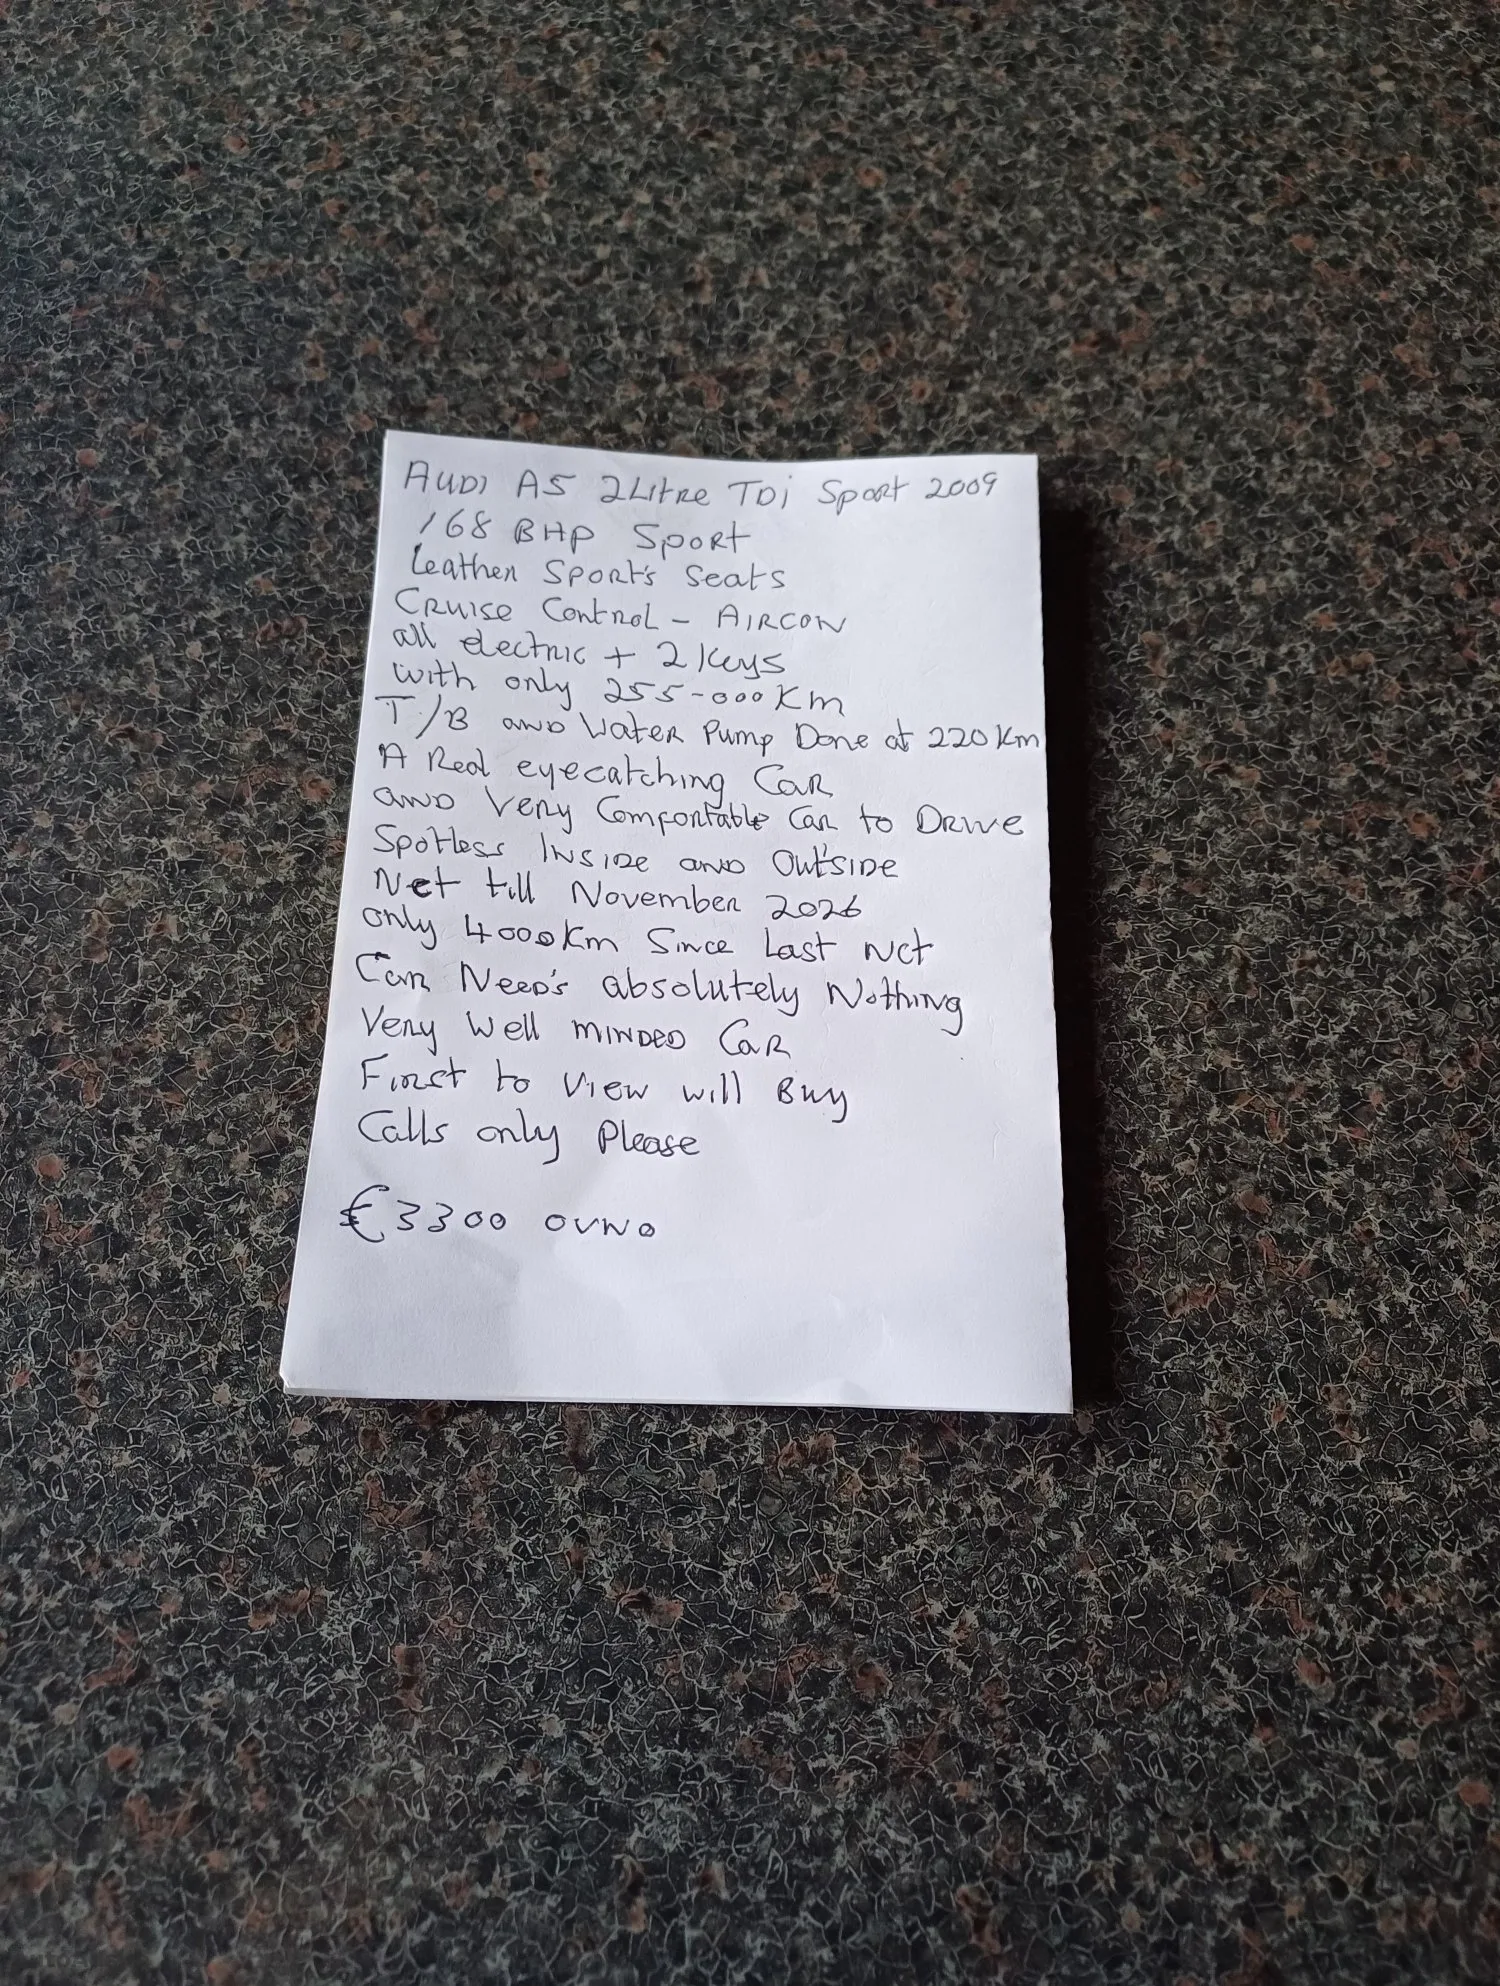 AUDI A5 2Litre TDi Sport 2009
168 BHP Sport
Leather Sport's Seats
Cruise Control - AIRCON
all electric + 2 Keys
with only 255-000 Km
T/B and Water Pump Done at 220 Km
A Red eyecatching Car
and Very Comfortable Car to Drive
Spotless Inside and Outside
Nct till November 2026
only 4000Km Since Last Nct
Car Need's absolutely Nothing
Very Well minded Car
First to View will Buy
Calls only Please
€3300 ovno